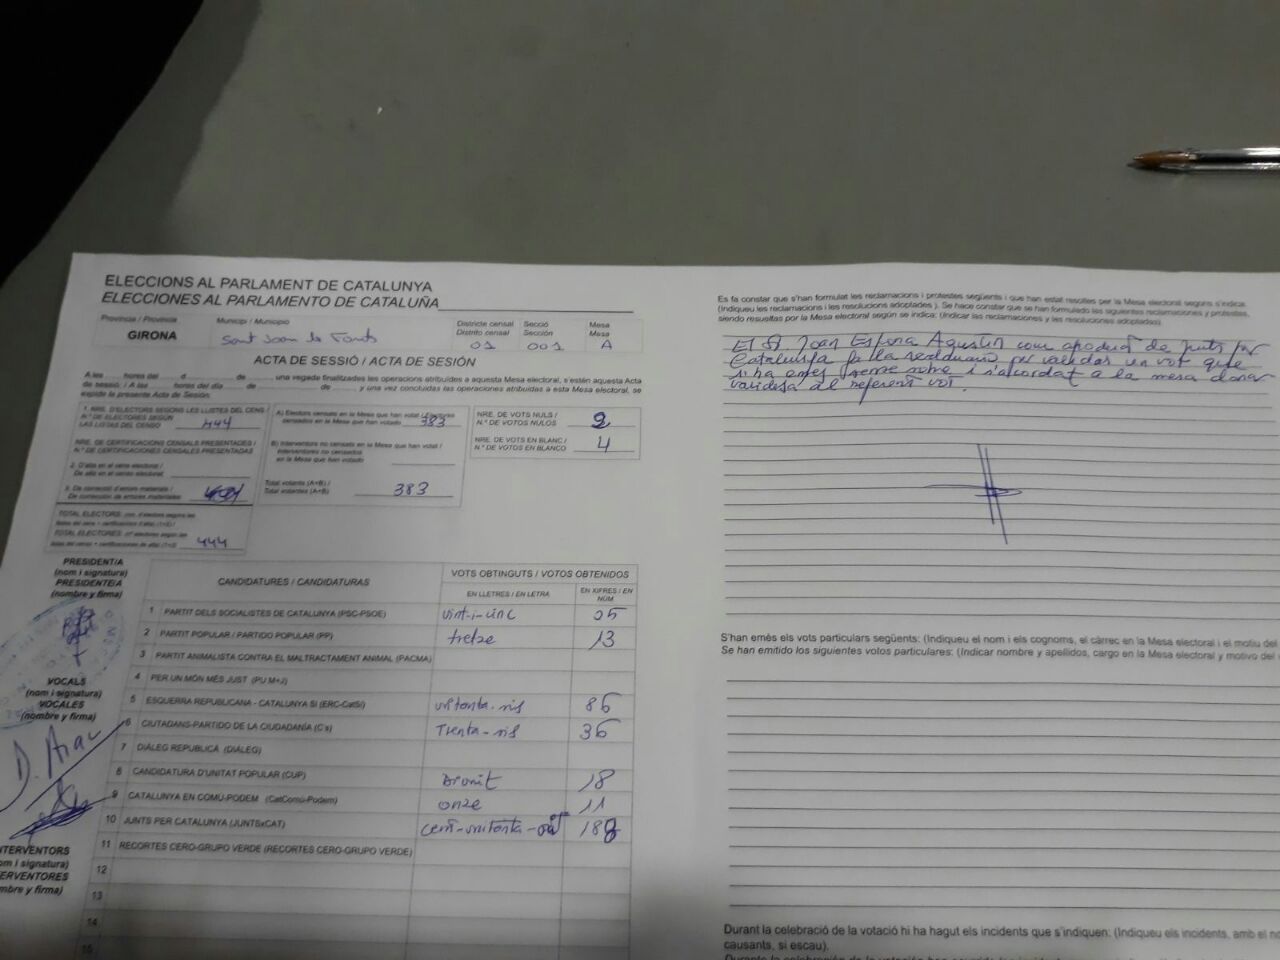 ELECCIONS AL PARLAMENT DE CATALUNYA
ELECCIONES AL PARLAMENTO DE CATALUÑA
Província / Provincia
GIRONA
Municipi / Municipio
Sant Joan les Fonts
Districte censal
Distrito censal
01
Secció
Sección
001
Mesa
Mesa
A
ACTA DE SESSIÓ / ACTA DE SESIÓN
A les hores del d de una vegada finalitzades les operacions atribuïdes a aquesta Mesa electoral, s'estén aquesta Acta
de sessió. / A las horas del día de de y una vez concluidas las operaciones atribuidas a esta Mesa electoral, se
expide la presente Acta de Sesión.
1. NRE. D'ELECTORS SEGONS LES LLISTES DEL CENS
N.º DE ELECTORES SEGÚN
LAS LISTAS DEL CENSO 444
NRE. DE CERTIFICACIONS CENSALS PRESENTADES /
N.º DE CERTIFICACIONES CENSALES PRESENTADAS
2. D'alta en el cens electoral /
De alta en el censo electoral
3. De correcció d'errors materials /
De corrección de errores materiales
TOTAL ELECTORS:
TOTAL ELECTORES:
444
A) Electors censats en la Mesa que han votat / Electores
censados en la Mesa que han votado 383
B) Interventors no censats en la Mesa que han votat /
Interventores no censados
en la Mesa que han votado
Total votants (A+B) /
Total votantes (A+B) 383
NRE. DE VOTS NULS /
N.º DE VOTOS NULOS 2
NRE. DE VOTS EN BLANC /
N.º DE VOTOS EN BLANCO 4
PRESIDENT/A
(nom i signatura)
PRESIDENTE/A
(nombre y firma)
VOCALS
(nom i signatura)
VOCALES
(nombre y firma)
INTERVENTORS
(nom i signatura)
INTERVENTORES
(nombre y firma)
CANDIDATURES / CANDIDATURAS
VOTS OBTINGUTS / VOTOS OBTENIDOS
EN LLETRES / EN LETRA
EN XIFRES / EN NÚM
1 PARTIT DELS SOCIALISTES DE CATALUNYA (PSC-PSOE) vint-i-cinc 25
2 PARTIT POPULAR / PARTIDO POPULAR (PP) tretze 13
3 PARTIT ANIMALISTA CONTRA EL MALTRACTAMENT ANIMAL (PACMA)
4 PER UN MÓN MÉS JUST (PUM+J)
5 ESQUERRA REPUBLICANA - CATALUNYA SÍ (ERC-CatSí) vuitanta-sis 86
6 CIUTADANS-PARTIDO DE LA CIUDADANÍA (C's) Trenta-sis 36
7 DIÀLEG REPUBLICÀ (DIÀLEG)
8 CANDIDATURA D'UNITAT POPULAR (CUP) Divuit 18
9 CATALUNYA EN COMÚ-PODEM (CatComú-Podem) onze 11
10 JUNTS PER CATALUNYA (JUNTSxCAT) cent-vuitanta-vuit 188
11 RECORTES CERO-GRUPO VERDE (RECORTES CERO-GRUPO VERDE)
12
13
14
15
Es fa constar que s'han formulat les reclamacions i protestes següents i que han estat resoltes per la Mesa electoral segons s'indica:
(Indiqueu les reclamacions i les resolucions adoptades). Se hace constar que se han formulado las siguientes reclamaciones y protestas,
siendo resueltas por la Mesa electoral según se indica: (Indicar las reclamaciones y las resoluciones adoptadas)
El Sr Joan Espuna Agustin com apoderat de Junts per
Catalunya fa la reclamació per validar un vot que
s'ha emès sense sobre i s'acordat a la mesa donar
validesa al referent vot.
S'han emès els vots particulars següents: (Indiqueu el nom i els cognoms, el càrrec en la Mesa electoral i el motiu del
Se han emitido los siguientes votos particulares: (Indicar nombre y apellidos, cargo en la Mesa electoral y motivo del
Durant la celebració de la votació hi ha hagut els incidents que s'indiquen: (Indiqueu els incidents, amb el no
causants, si escau).